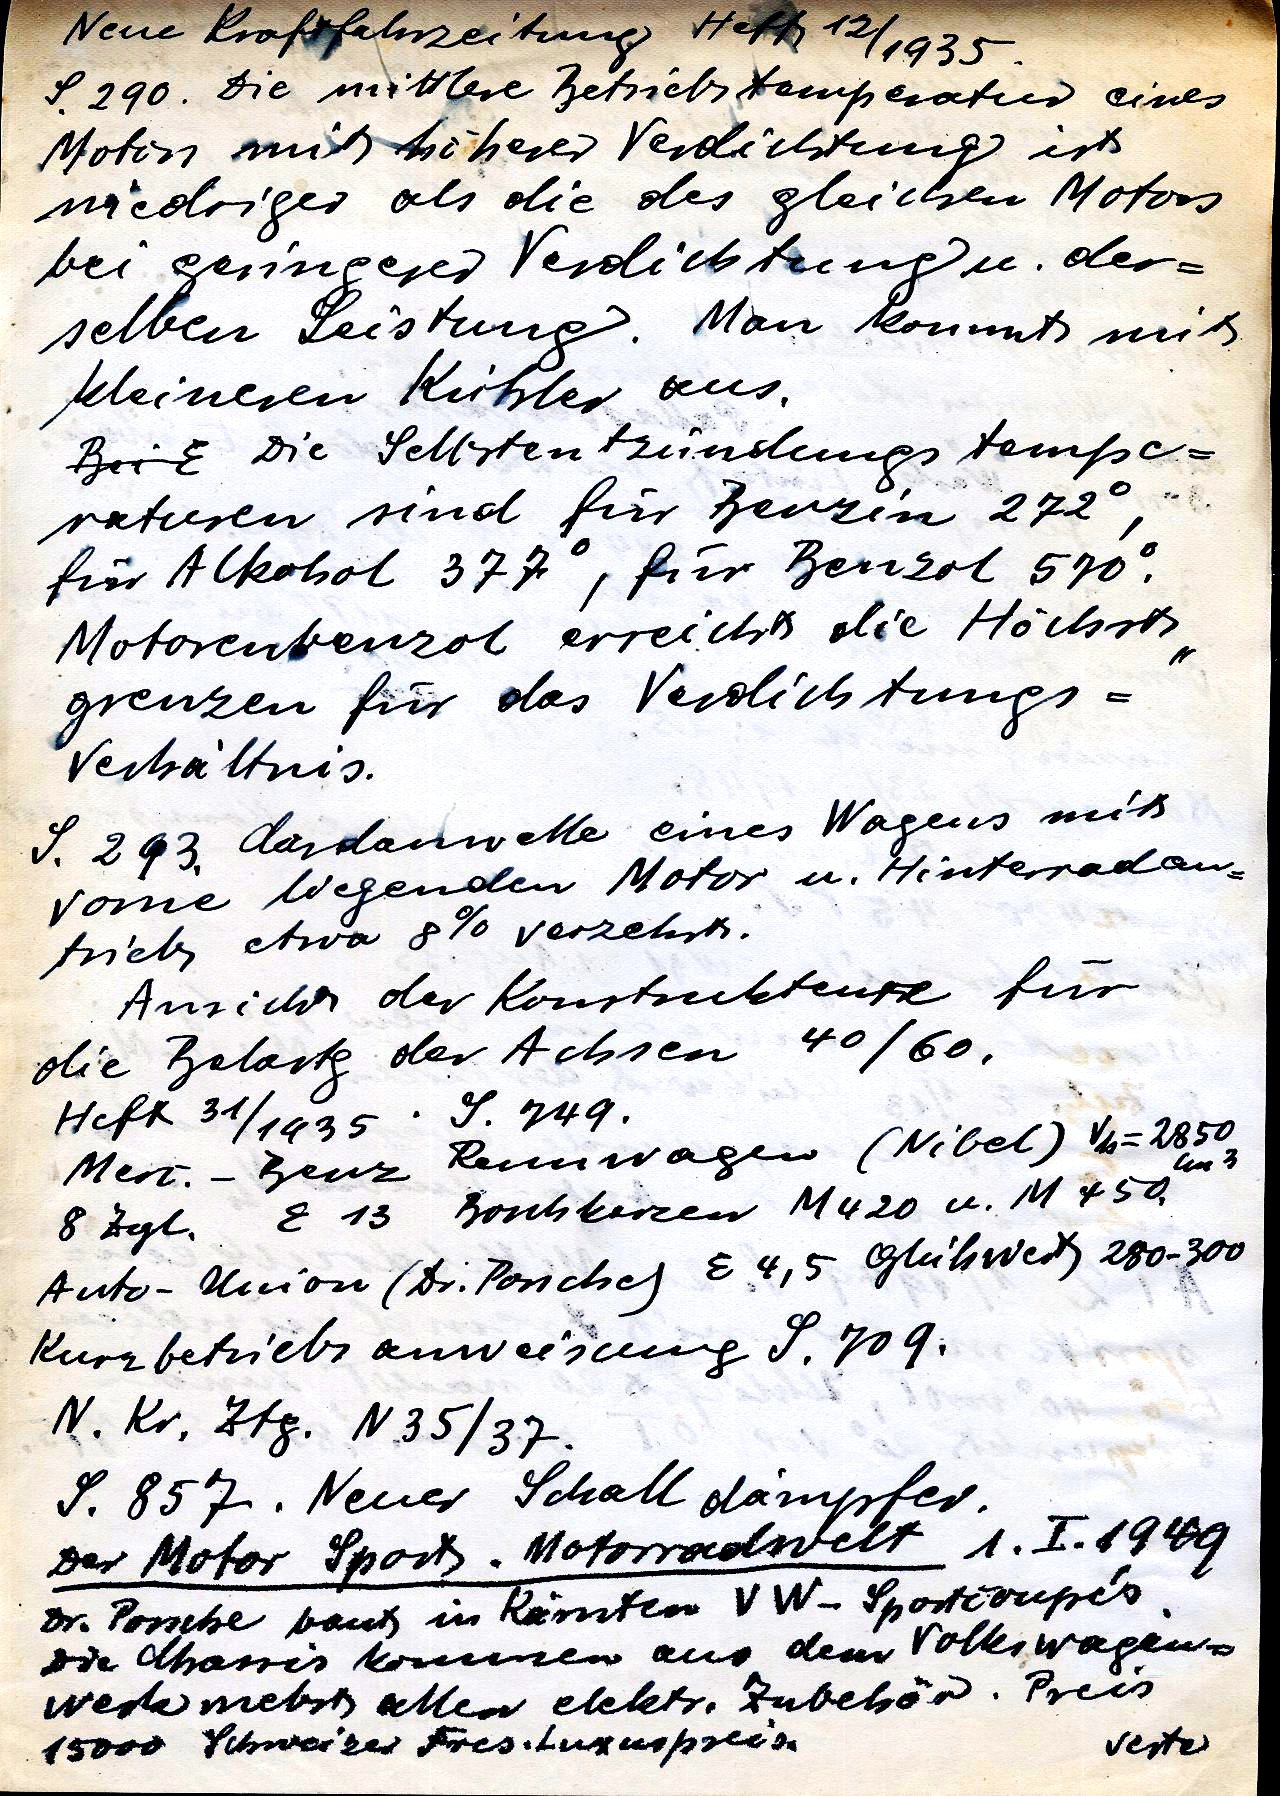 Neue Kraftfahrzeitung Heft 12/1935.
S. 290. Die mittlere Betriebstemperatur eines
Motors mit höherer Verdichtung ist
niedriger als die des gleichen Motors
bei geringerer Verdichtung u. der=
selben Leistung. Man kommt mit
kleineren Kühler aus.
Bei E Die Selbstentzündungstempe=
raturen sind für Benzin 272°,
für Alkohol 377°, für Benzol 570°.
Motorenbenzol erreicht die Höchst„
grenzen für das Verdichtungs=
Verhältnis.
S. 293. Cardanwelle eines Wagens mit
vorne liegenden Motor u. Hinterradan=
trieb etwa 8% verzehrt.
Ansicht der Konstrukteure für
die Belastg der Achsen 40/60.
Heft 31/1935 . S. 749.
Merc. - Benz Rennwagen (Nibel) Vh=2850 cm3
8 Zyl. E 13 Boschkerzen M420 u. M 450.
Auto-Union (Dr. Porsche) E 4,5 Glühwert 280-300
Kurzbetriebsanweisung S. 709.
N. Kr. Ztg. N 35/37.
S. 857. Neuer Schalldämpfer.
Der Motor Sport. Motorradwelt 1. I. 1949
Dr. Porsche baut in Kärnten VW-Sportcoupés.
Die Chassis kommen aus dem Volkswagen=
werk nebst allen elektr. Zubehör. Preis
15000 Schweizer Frcs. Luxuspreis.
verte